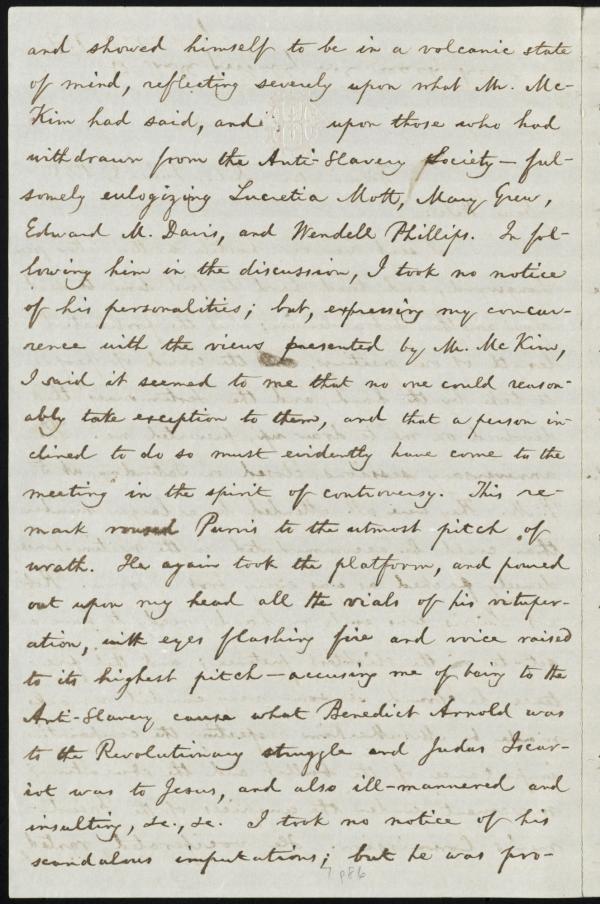 and showed himself to be in a volcanic state
of mind, reflecting severely upon what Mr. Mc-
Kim had said, and upon those who had
withdrawn from the Anti-Slavery Society — ful-
somely eulogizing Lucretia Mott, Mary Grew,
Edward M. Davis, and Wendell Phillips. In fol-
lowing him in the discussion, I took no notice
of his personalities; but, expressing my concur-
rence with the views presented by Mr. McKim,
I said it seemed to me that no one could reason-
ably take exception to them, and that a person in-
clined to do so must evidently have come to the
meeting in the spirit of controversy. This re-
mark roused Purvis to the utmost pitch of
wrath. He again took the platform, and poured
out upon my head all the vials of his vituper-
ation, with eyes flashing fire and voice raised
to its highest pitch — accusing me of being to the
Anti-Slavery cause what Benedict Arnold was
to the Revolutionary struggle and Judas Iscar-
iot was to Jesus, and also ill-mannered and
insulting, &c., &c. I took no notice of his
scandalous imputations; but he was pro-